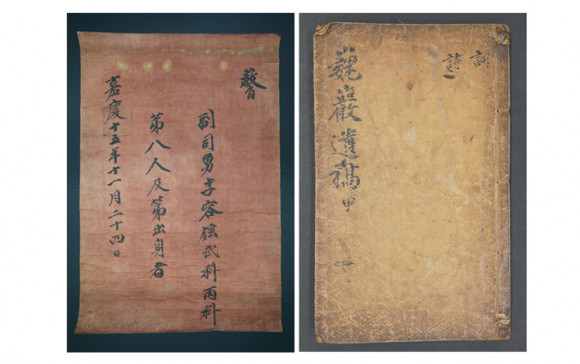 敎旨
副司勇李容鉉武科丙科
第八人及第出身者
嘉慶十五年十一月二十四日
詩
巍巖遺稿 甲